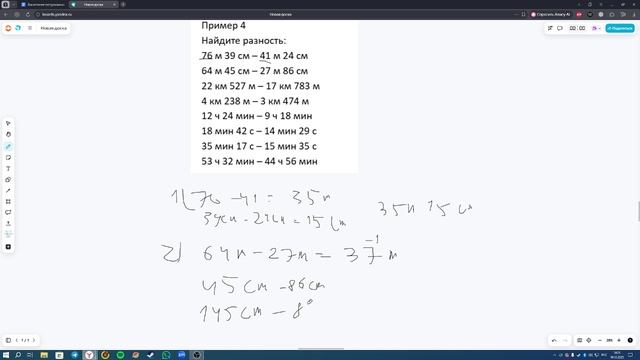 Новая доска
boards.yandex.ru
Новая доска
Спросить Алису AI
Новая доска
Поделиться
Пример 4
Найдите разность:
76 м 39 см – 41 м 24 см
64 м 45 см – 27 м 86 см
22 км 527 м – 17 км 783 м
4 км 238 м – 3 км 474 м
12 ч 24 мин – 9 ч 18 мин
18 мин 42 с – 14 мин 29 с
35 мин 17 с – 15 мин 35 с
53 ч 32 мин – 44 ч 56 мин
1) 76 - 41 = 35 м
39см - 24см = 15 см
35м 15 см
2) 64м - 27м = 37 м
-1
45 см - 86 см
145 см - 8